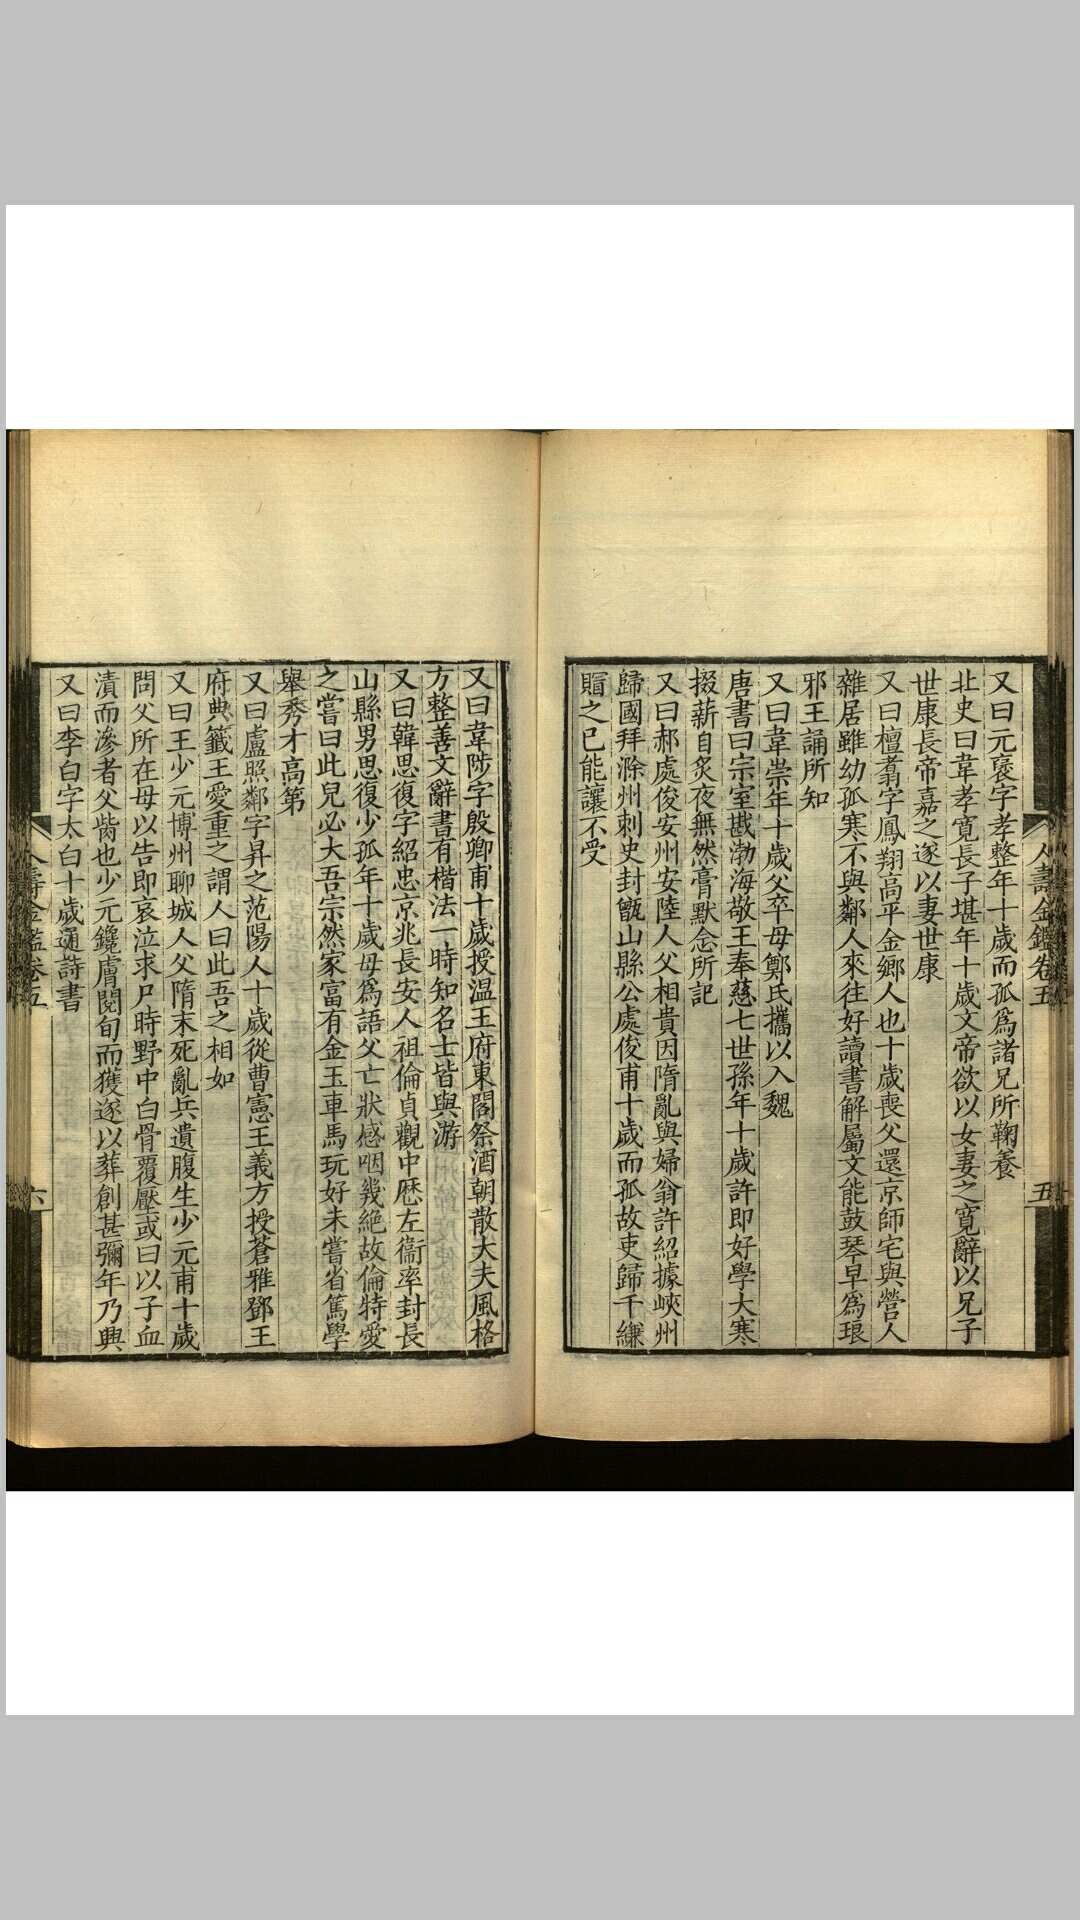 人壽金鑑卷五
五
又曰元褒字孝整年十歲而孤爲諸兄所鞠養
北史曰韋孝寬長子堪年十歲文帝欲以女妻之寬辭以兄子
世康長帝嘉之遂以妻世康
又曰檀翥字鳳翔高平金鄉人也十歲喪父還京師宅與營人
雜居雖幼孤寒不與鄰人來往好讀書解屬文能鼓琴早爲琅
邪王誦所知
又曰韋崇年十歲父卒母鄭氏攜以入魏
唐書曰宗室戡渤海敬王奉慈七世孫年十歲許即好學大寒
掇薪自炙夜無然膏默念所記
又曰郝處俊安州安陸人父相貴因隋亂與婦翁許紹據峽州
歸國拜滁州刺史封甑山縣公處俊甫十歲而孤故吏歸千縑
賵之已能讓不受
又曰韋陟字殷卿甫十歲授温王府東閣祭酒朝散大夫風格
方整善文辭書有楷法一時知名士皆與游
又曰韓思復字紹忠京兆長安人祖倫貞觀中歷左衞率封長
山縣男思復少孤年十歲母爲語父亡狀感咽幾絶故倫特愛
之嘗曰此兒必大吾宗然家富有金玉車馬玩好未嘗省篤學
舉秀才高第
又曰盧照鄰字昇之范陽人十歲從曹憲王義方授蒼雅鄧王
府典籤王愛重之謂人曰此吾之相如
又曰王少元博州聊城人父隋末死亂兵遺腹生少元甫十歲
問父所在母以告即哀泣求尸時野中白骨覆壓或曰以子血
漬而滲者父胔也少元鑱膚閱旬而獲遂以葬創甚彌年乃興
又曰李白字太白十歲通詩書
人壽金鑑卷五
六